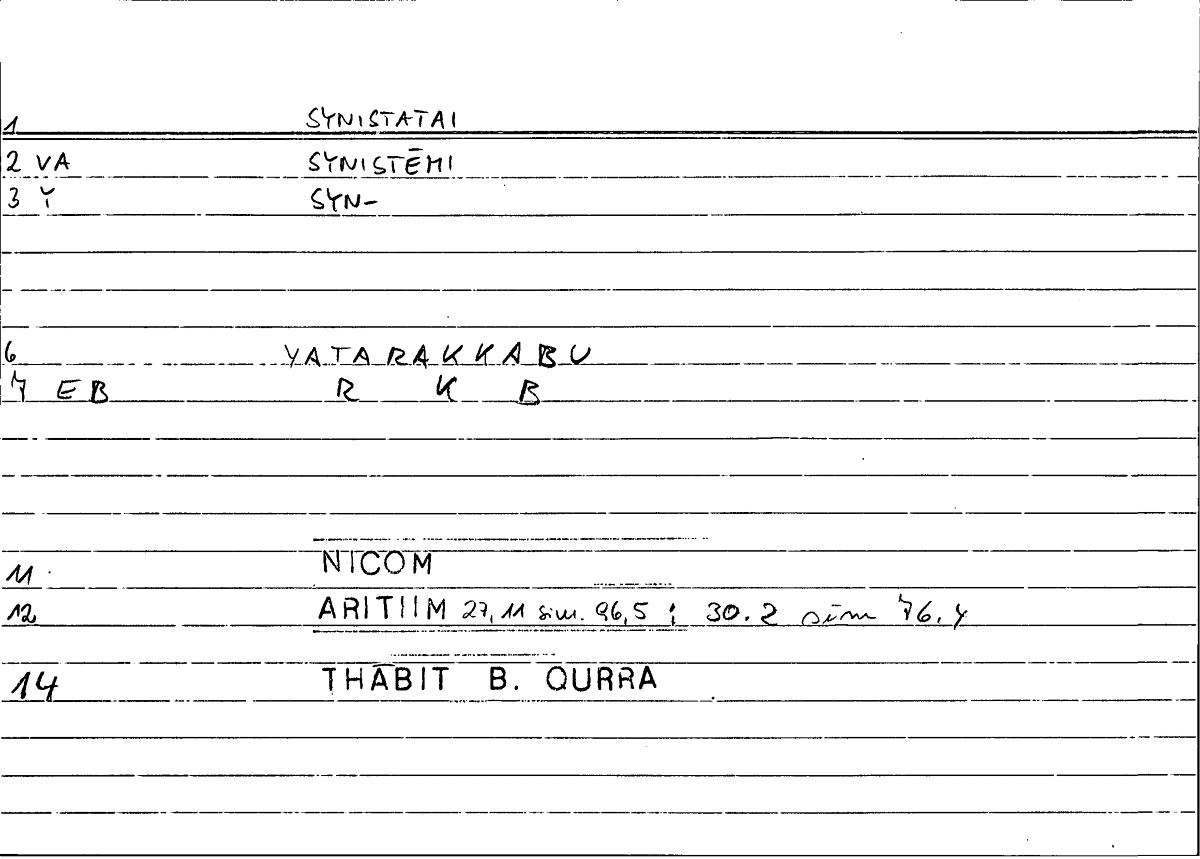 1 SYNISTATAI
2 VA SYNISTĒMI
3 Y SYN-
6 YATARAKKABU
7 EB R K B
11 NICOM
12 ARITIIM 27,11 sim. 96,5 ; 30.2 sim 76.4
14 THĀBIT B. QURRA